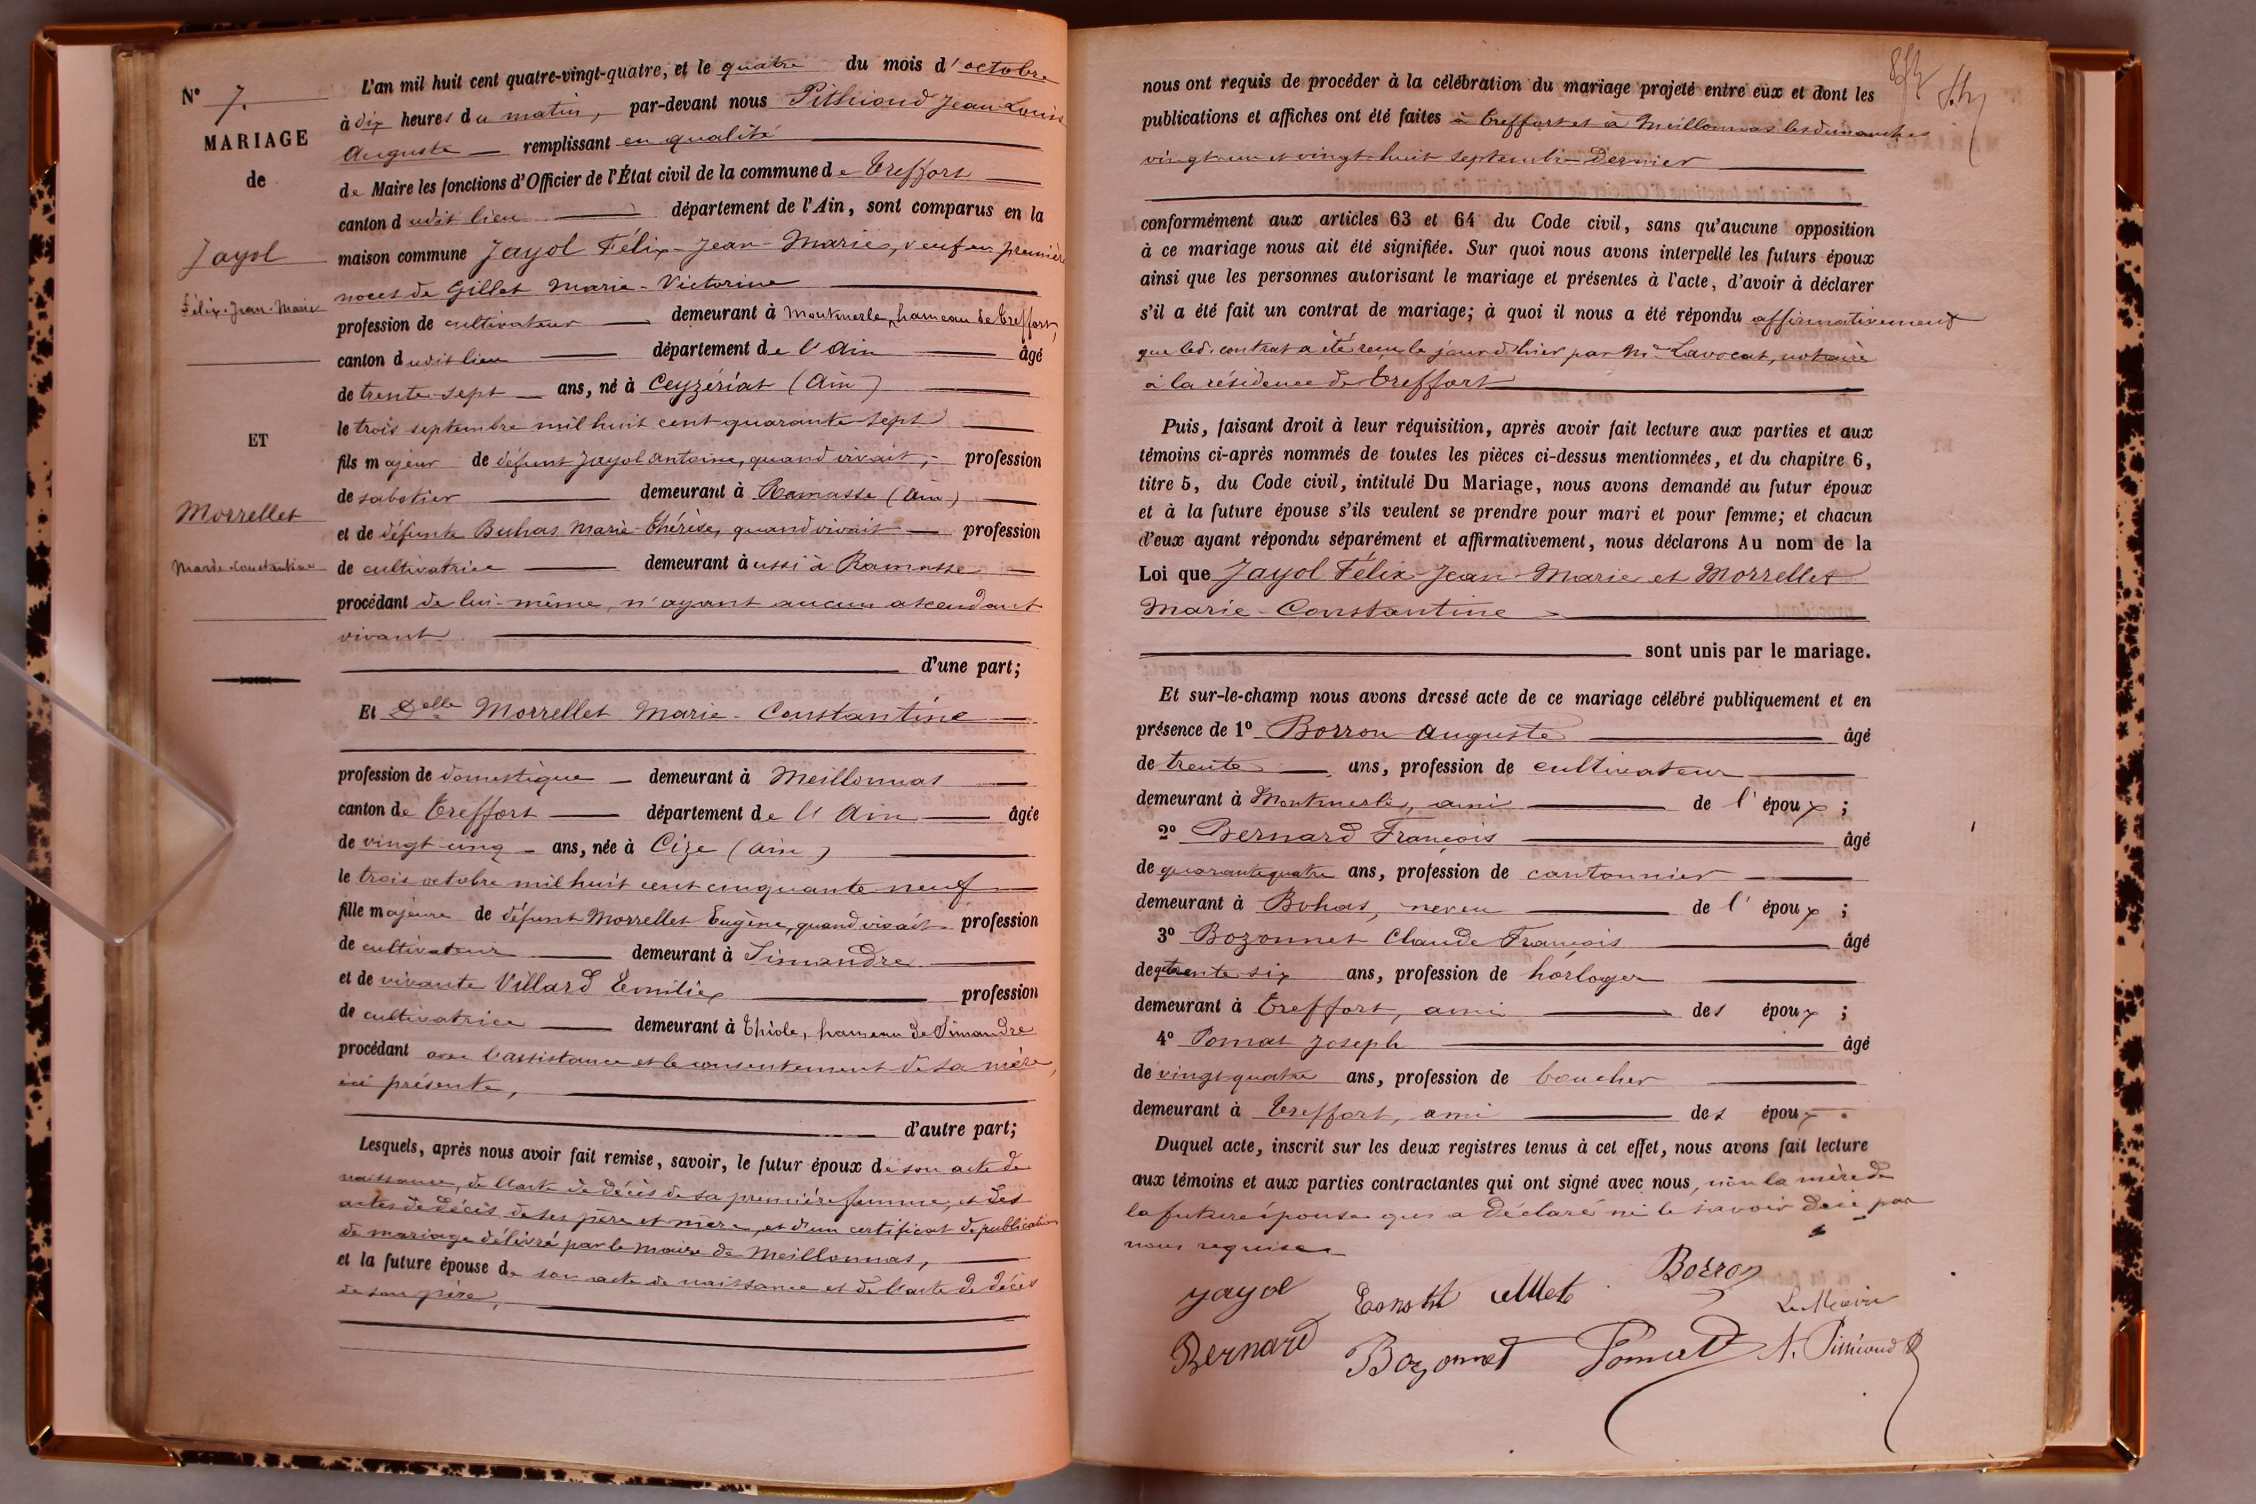 N° 7.
MARIAGE
de
Jayol
Félix-Jean-Marie
ET
Morrellet
Marie-Constantine
L'an mil huit cent quatre-vingt-quatre, et le quatre du mois d'octobre
à dix heures du matin, par-devant nous Pithioud Jean-Louis
Auguste remplissant en qualité
de Maire les fonctions d'Officier de l'État civil de la commune de Treffort
canton dudit lieu département de l'Ain, sont comparus en la
maison commune Jayol Félix-Jean-Marie, veuf en première
noces de Gillet Marie-Victorine
profession de cultivateur demeurant à Montmerle, hameau de Treffort,
canton dudit lieu département de l'Ain âgé
de trente-sept ans, né à Ceyzériat (Ain)
le trois septembre mil huit cent quarante-sept
fils majeur de défunt Jayol Antoine, quand vivait, profession
de sabotier demeurant à Ramasse (Ain)
et de défunte Buhas Marie-Thérèse, quand vivait profession
de cultivatrice demeurant aussi à Ramasse
procédant de lui-même, n'ayant aucun ascendant
vivant
d'une part;
Et Delle Morrellet Marie-Constantine
profession de domestique demeurant à Meillonnas
canton de Treffort département de l'Ain âgée
de vingt-cinq ans, née à Cize (Ain)
le trois octobre mil huit cent cinquante-neuf
fille majeure de défunt Morrellet Eugène, quand vivait profession
de cultivateur demeurant à Simandre
et de vivante Villard Emilie profession
de cultivatrice demeurant à Thiole, hameau de Simandre
procédant avec l'assistance et le consentement de sa mère,
ici présente,
d'autre part;
Lesquels, après nous avoir fait remise, savoir, le futur époux de son acte de
naissance, de l'acte de décès de sa première femme, et des
actes de décès de ses père et mère, et d'un certificat de publication
de mariage délivré par le Maire de Meillonnas,
et la future épouse de son acte de naissance et de l'acte de décès
de son père,
nous ont requis de procéder à la célébration du mariage projeté entre eux et dont les
publications et affiches ont été faites à Treffort et à Meillonnas les dimanches
vingt-un et vingt-huit septembre dernier
conformément aux articles 63 et 64 du Code civil, sans qu'aucune opposition
à ce mariage nous ait été signifiée. Sur quoi nous avons interpellé les futurs époux
ainsi que les personnes autorisant le mariage et présentes à l'acte, d'avoir à déclarer
s'il a été fait un contrat de mariage; à quoi il nous a été répondu affirmativement
que led. contrat a été reçu le jour d'hier par Me Lavocat, notaire
à la résidence de Treffort
Puis, faisant droit à leur réquisition, après avoir fait lecture aux parties et aux
témoins ci-après nommés de toutes les pièces ci-dessus mentionnées, et du chapitre 6,
titre 5, du Code civil, intitulé Du Mariage, nous avons demandé au futur époux
et à la future épouse s'ils veulent se prendre pour mari et pour femme; et chacun
d'eux ayant répondu séparément et affirmativement, nous déclarons Au nom de la
Loi que Jayol Félix-Jean-Marie et Morrellet
Marie-Constantine
sont unis par le mariage.
Et sur-le-champ nous avons dressé acte de ce mariage célébré publiquement et en
présence de 1° Borron Auguste âgé
de trente ans, profession de cultivateur
demeurant à Montmerle, ami de l'époux;
2° Bernard François âgé
de quarante-quatre ans, profession de cantonnier
demeurant à Bohas, neveu de l'époux;
3° Bozonnet Claude François âgé
de trente-six ans, profession de horloger
demeurant à Treffort, ami des époux;
4° Pomat Joseph âgé
de vingt-quatre ans, profession de boucher
demeurant à Treffort, ami des époux.
Duquel acte, inscrit sur les deux registres tenus à cet effet, nous avons fait lecture
aux témoins et aux parties contractantes qui ont signé avec nous, non la mère de
la future épouse qui a déclaré ne le savoir de ce par
nous requise
Jayol Borron
Le Maire
Bernard Bozonnet Pomat A. Pithioud